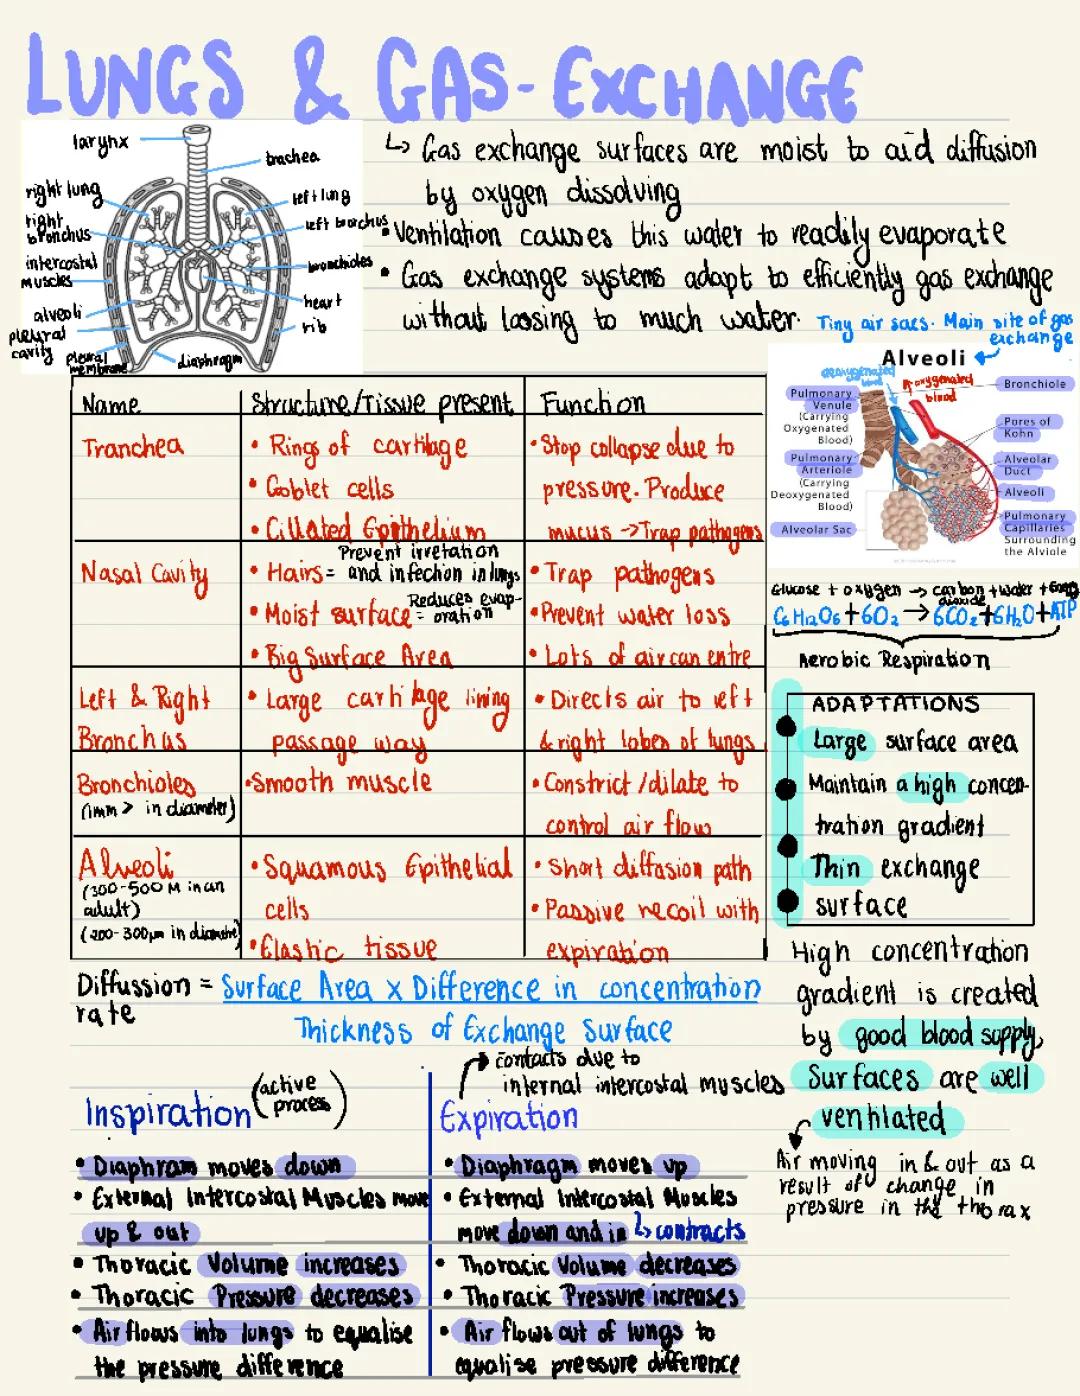 LUNGS & GAS-EXCHANGE
larynx
trachea
right lung
left lung
right
bronchus
left bronchus
intercostal
muscles
bronchioles
alveoli
heart
pleural
cavity
rib
pleural
membrane
diaphragm
↳ Gas exchange surfaces are moist to aid diffusion
by oxygen dissolving
• Ventilation causes this water to readily evaporate
• Gas exchange systems adapt to efficiently gas exchange
without loosing to much water.
Tiny air sacs. Main site of gas
exchange
Alveoli
deoxygenated
blood
oxygenated
blood
Pulmonary
Venule
(Carrying
Oxygenated
Blood)
Pulmonary
Arteriole
(Carrying
Deoxygenated
Blood)
Alveolar Sac
Bronchiole
Pores of
Kohn
Alveolar
Duct
Alveoli
Pulmonary
Capillaries
Surrounding
the Alviole
Name Structure/Tissue present Function
Tranchea
• Rings of cartilage
• Goblet cells
• Cillated Epithelium
• Stop collapse due to
pressure. Produce
mucus -> Trap pathogens
Nasal Cavity
• Hairs = Prevent irretation
and infection in lungs
• Moist surface = Reduces evap-
oration
• Big Surface Area
• Trap pathogens
• Prevent water loss
• Lots of air can entre
Left & Right
Bronchus
• Large cartilage lining
passage way
• Directs air to left
& right lobes of lungs
Bronchioles
(1mm > in diameter)
• Smooth muscle
• Constrict / dilate to
control air flow
Alveoli
(300-500 M in an
adult)
(200-300µm in diametre)
• Squamous Epithelial
cells
• Elastic tissue
• Short diffusion path
• Passive recoil with
expiration
Glucose + oxygen → carbon dioxide + water + Energy
C6H12O6 + 6O2 → 6CO2 + 6H2O + ATP
Aerobic Respiration
ADAPTATIONS
Large surface area
Maintain a high concen-
tration gradient
Thin exchange
surface
High concentration
gradient is created
by good blood supply,
Surfaces are well
ventilated
Air moving in & out as a
result of change in
pressure in the thorax
Diffussion = Surface Area x Difference in concentration
rate
Thickness of Exchange Surface
Inspiration (active
process)
• Diaphram moves down
• External Intercostal Muscles move
up & out
• Thoracic Volume increases
• Thoracic Pressure decreases
• Air flows into lungs to equalise
the pressure difference
contacts due to
internal intercostal muscles
Expiration
• Diaphragm moves up
• External Intercostal Muscles
move down and in ↳ contracts
• Thoracic Volume decreases
• Thoracic Pressure increases
• Air flows out of lungs to
equalise pressure difference